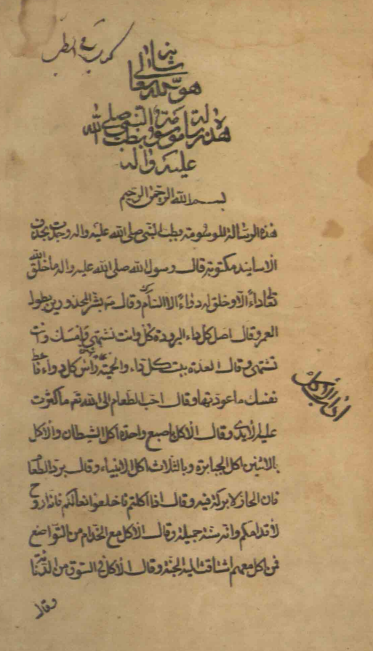 هو الله تعالى شانه
هذه رسالة موسومة بطب النبي صلى الله
عليه واله
بسم الله الرحمن الرحيم
هذه الرسالة الموسومة بطب النبي صلى الله عليه واله وجدت بحذف
الاسانيد مكتوبة قال رسول الله صلى الله عليه واله ما خلق الله
تعالى داءً الا وخلق له دواءً الا السام وقال بشر المحرورين بطول
العمر وقال اصل كل داء البرودة كل وانت تشتهي وامسك وانت
تشتهي وقال المعدة بيت كل داء والحمية رأس كل دواء فاعط
نفسك ما عودتها وقال احب الطعام الى الله تع ما كثرت
عليه الايدي وقال الاكل باصبع واحدة اكل الشيطان والاكل
بالاثنين اكل الجبابرة وبالثلاث اكل الانبياء وقال برد الطعام
فان الحار لا بركة فيه وقال اذا اكلتم فاخلعوا نعالكم فانه اروح
لاقدامكم وانه سنة جميلة وقال الاكل مع الخدام من التواضع
فمن اكل معهم اشتاقت اليه الجنة وقال الاكل في السوق من الدناءة
وقال